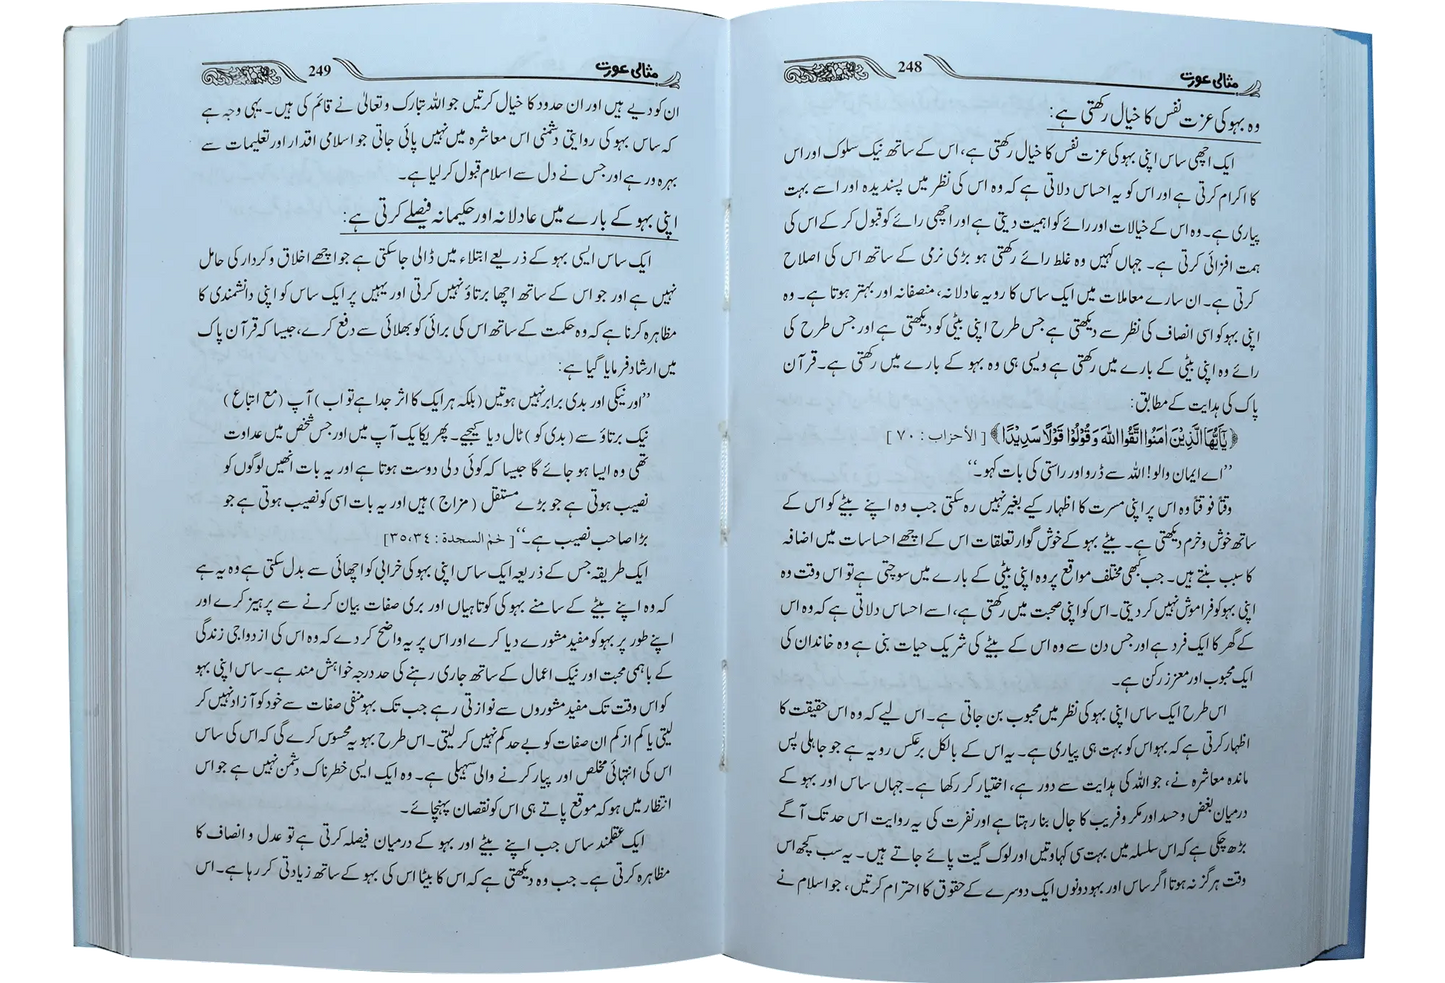 مثالی عورت 248
وہ بہو کی عزت نفس کا خیال رکھتی ہے:
ایک اچھی ساس اپنی بہو کی عزت نفس کا خیال رکھتی ہے، اس کے ساتھ نیک سلوک اور اس
کا اکرام کرتی ہے اور اس کو یہ احساس دلاتی ہے کہ وہ اس کی نظر میں پسندیدہ اور اسے بہت
پیاری ہے۔ وہ اس کے خیالات اور رائے کو اہمیت دیتی ہے اور اچھی رائے کو قبول کر کے اس کی
ہمت افزائی کرتی ہے۔ جہاں کہیں وہ غلط رائے رکھتی ہو بڑی نرمی کے ساتھ اس کی اصلاح
کرتی ہے۔ ان سارے معاملات میں ایک ساس کا رویہ عادلانہ، منصفانہ اور بہتر ہوتا ہے۔ وہ
اپنی بہو کو اسی انصاف کی نظر سے دیکھتی ہے جس طرح اپنی بیٹی کو دیکھتی ہے اور جس طرح کی
رائے وہ اپنی بیٹی کے بارے میں رکھتی ہے ویسی ہی وہ بہو کے بارے میں رکھتی ہے۔ قرآن
پاک کی ہدایت کے مطابق:
﴿يٰۤاَيُّهَا الَّذِيْنَ اٰمَنُوا اتَّقُوا اللّٰهَ وَقُوْلُوْا قَوْلًا سَدِيْدًا﴾ [ الأحزاب : ٧٠ ]
’’اے ایمان والو! اللہ سے ڈرو اور راستی کی بات کہو۔‘‘
وقتاً فوقتاً وہ اس پر اپنی مسرت کا اظہار کیے بغیر نہیں رہ سکتی جب وہ اپنے بیٹے کو اس کے
ساتھ خوش و خرم دیکھتی ہے۔ بیٹے بہو کے خوش گوار تعلقات اس کے اچھے احساسات میں اضافہ
کا سبب بنتے ہیں۔ جب کبھی مختلف مواقع پر وہ اپنی بیٹی کے بارے میں سوچتی ہے تو اس وقت وہ
اپنی بہو کو فراموش نہیں کر دیتی۔ اس کو اپنی صحبت میں رکھتی ہے، اسے احساس دلاتی ہے کہ وہ اس
کے گھر کا ایک فرد ہے اور جس دن سے وہ اس کے بیٹے کی شریک حیات بنی ہے وہ خاندان کی
ایک محبوب اور معزز رکن ہے۔
اس طرح ایک ساس اپنی بہو کی نظر میں محبوب بن جاتی ہے۔ اس لیے کہ وہ اس حقیقت کا
اظہار کرتی ہے کہ بہو اس کو بہت ہی پیاری ہے۔ یہ اس کے بالکل برعکس رویہ ہے جو جاہلی پس
ماندہ معاشرہ نے، جو اللہ کی ہدایت سے دور ہے، اختیار کر رکھا ہے۔ جہاں ساس اور بہو کے
درمیان بغض و حسد اور مکر و فریب کا جال بنا رہتا ہے اور نفرت کی یہ روایت اس حد تک آگے
بڑھ چکی ہے کہ اس سلسلہ میں بہت سی کہاوتیں اور لوک گیت پائے جاتے ہیں۔ یہ سب کچھ اس
وقت ہرگز نہ ہوتا اگر ساس اور بہو دونوں ایک دوسرے کے حقوق کا احترام کرتیں، جو اسلام نے
مثالی عورت 249
ان کو دیے ہیں اور ان حدود کا خیال کرتیں جو اللہ تبارک و تعالیٰ نے قائم کی ہیں۔ یہی وجہ ہے
کہ ساس بہو کی روایتی دشمنی اس معاشرہ میں نہیں پائی جاتی جو اسلامی اقدار اور تعلیمات سے
بہرہ ور ہے اور جس نے دل سے اسلام قبول کر لیا ہے۔
اپنی بہو کے بارے میں عادلانہ اور حکیمانہ فیصلے کرتی ہے:
ایک ساس ایسی بہو کے ذریعے ابتلاء میں ڈالی جا سکتی ہے جو اچھے اخلاق و کردار کی حامل
نہیں ہے اور جو اس کے ساتھ اچھا برتاؤ نہیں کرتی اور یہیں پر ایک ساس کو اپنی دانشمندی کا
مظاہرہ کرنا ہے کہ وہ حکمت کے ساتھ اس کی برائی کو بھلائی سے دفع کرے، جیسا کہ قرآن پاک
میں ارشاد فرمایا گیا ہے:
’’اور نیکی اور بدی برابر نہیں ہوتیں (بلکہ ہر ایک کا اثر جدا ہے تو اب) آپ (مع اتباع)
نیک برتاؤ سے (بدی کو) ٹال دیا کیجیے۔ پھر یکایک آپ میں اور جس شخص میں عداوت
تھی وہ ایسا ہو جائے گا جیسا کہ کوئی دلی دوست ہوتا ہے اور یہ بات انھیں لوگوں کو
نصیب ہوتی ہے جو بڑے مستقل (مزاج) ہیں اور یہ بات اسی کو نصیب ہوتی ہے جو
بڑا صاحب نصیب ہے۔‘‘ [ حٰمٓ السجدة : ٣٥،٣٤]
ایک طریقہ جس کے ذریعہ ایک ساس اپنی بہو کی خرابی کو اچھائی سے بدل سکتی ہے وہ یہ ہے
کہ وہ اپنے بیٹے کے سامنے بہو کی کوتاہیاں اور بری صفات بیان کرنے سے پرہیز کرے اور
اپنے طور پر بہو کو مفید مشورے دیا کرے اور اس پر یہ واضح کر دے کہ وہ اس کی ازدواجی زندگی
کے باہمی محبت اور نیک اعمال کے ساتھ جاری رہنے کی حد درجہ خواہش مند ہے۔ ساس اپنی بہو
کو اس وقت تک مفید مشوروں سے نوازتی رہے جب تک بہو منفی صفات سے خود کو آزاد نہیں کر
لیتی یا کم از کم ان صفات کو بے حد کم نہیں کر لیتی۔ اس طرح بہو یہ محسوس کرے گی کہ اس کی ساس
اس کی انتہائی مخلص اور پیار کرنے والی سہیلی ہے۔ وہ ایک ایسی خطرناک دشمن نہیں ہے جو اس
انتظار میں ہو کہ موقع پاتے ہی اس کو نقصان پہنچائے۔
ایک عقلمند ساس جب اپنے بیٹے اور بہو کے درمیان فیصلہ کرتی ہے تو عدل و انصاف کا
مظاہرہ کرتی ہے۔ جب وہ دیکھتی ہے کہ اس کا بیٹا اس کی بہو کے ساتھ زیادتی کر رہا ہے۔ اس